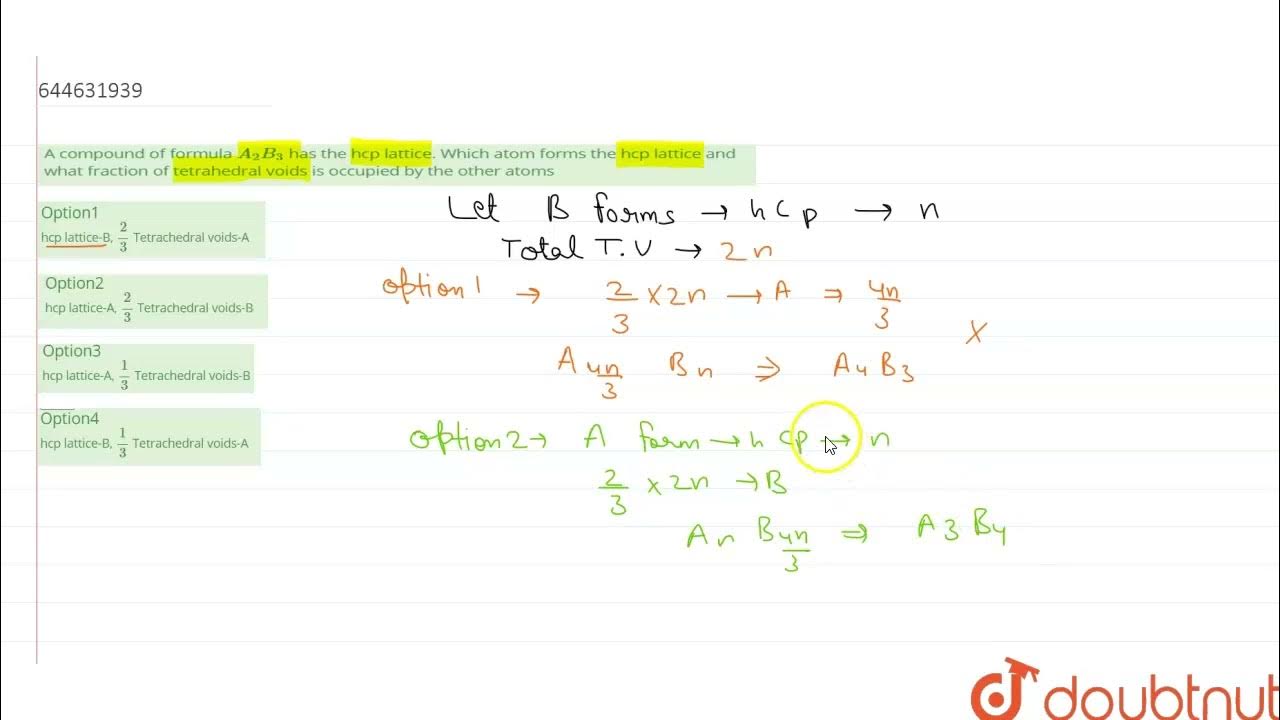 644631939
A compound of formula A₂B₃ has the hcp lattice. Which atom forms the hcp lattice and
what fraction of tetrahedral voids is occupied by the other atoms
Option1
hcp lattice-B, 2/3 Tetrachedral voids-A
Option2
hcp lattice-A, 2/3 Tetrachedral voids-B
Option3
hcp lattice-A, 1/3 Tetrachedral voids-B
Option4
hcp lattice-B, 1/3 Tetrachedral voids-A
Let B forms → hcp → n
Total T.V → 2n
option 1 → 2/3 × 2n → A ⇒ 4n/3
X
A 4n/3 Bn ⇒ A4 B3
option 2 → A form → hcp → n
2/3 × 2n → B
An B 4n/3 ⇒ A3 B4
doubtnut